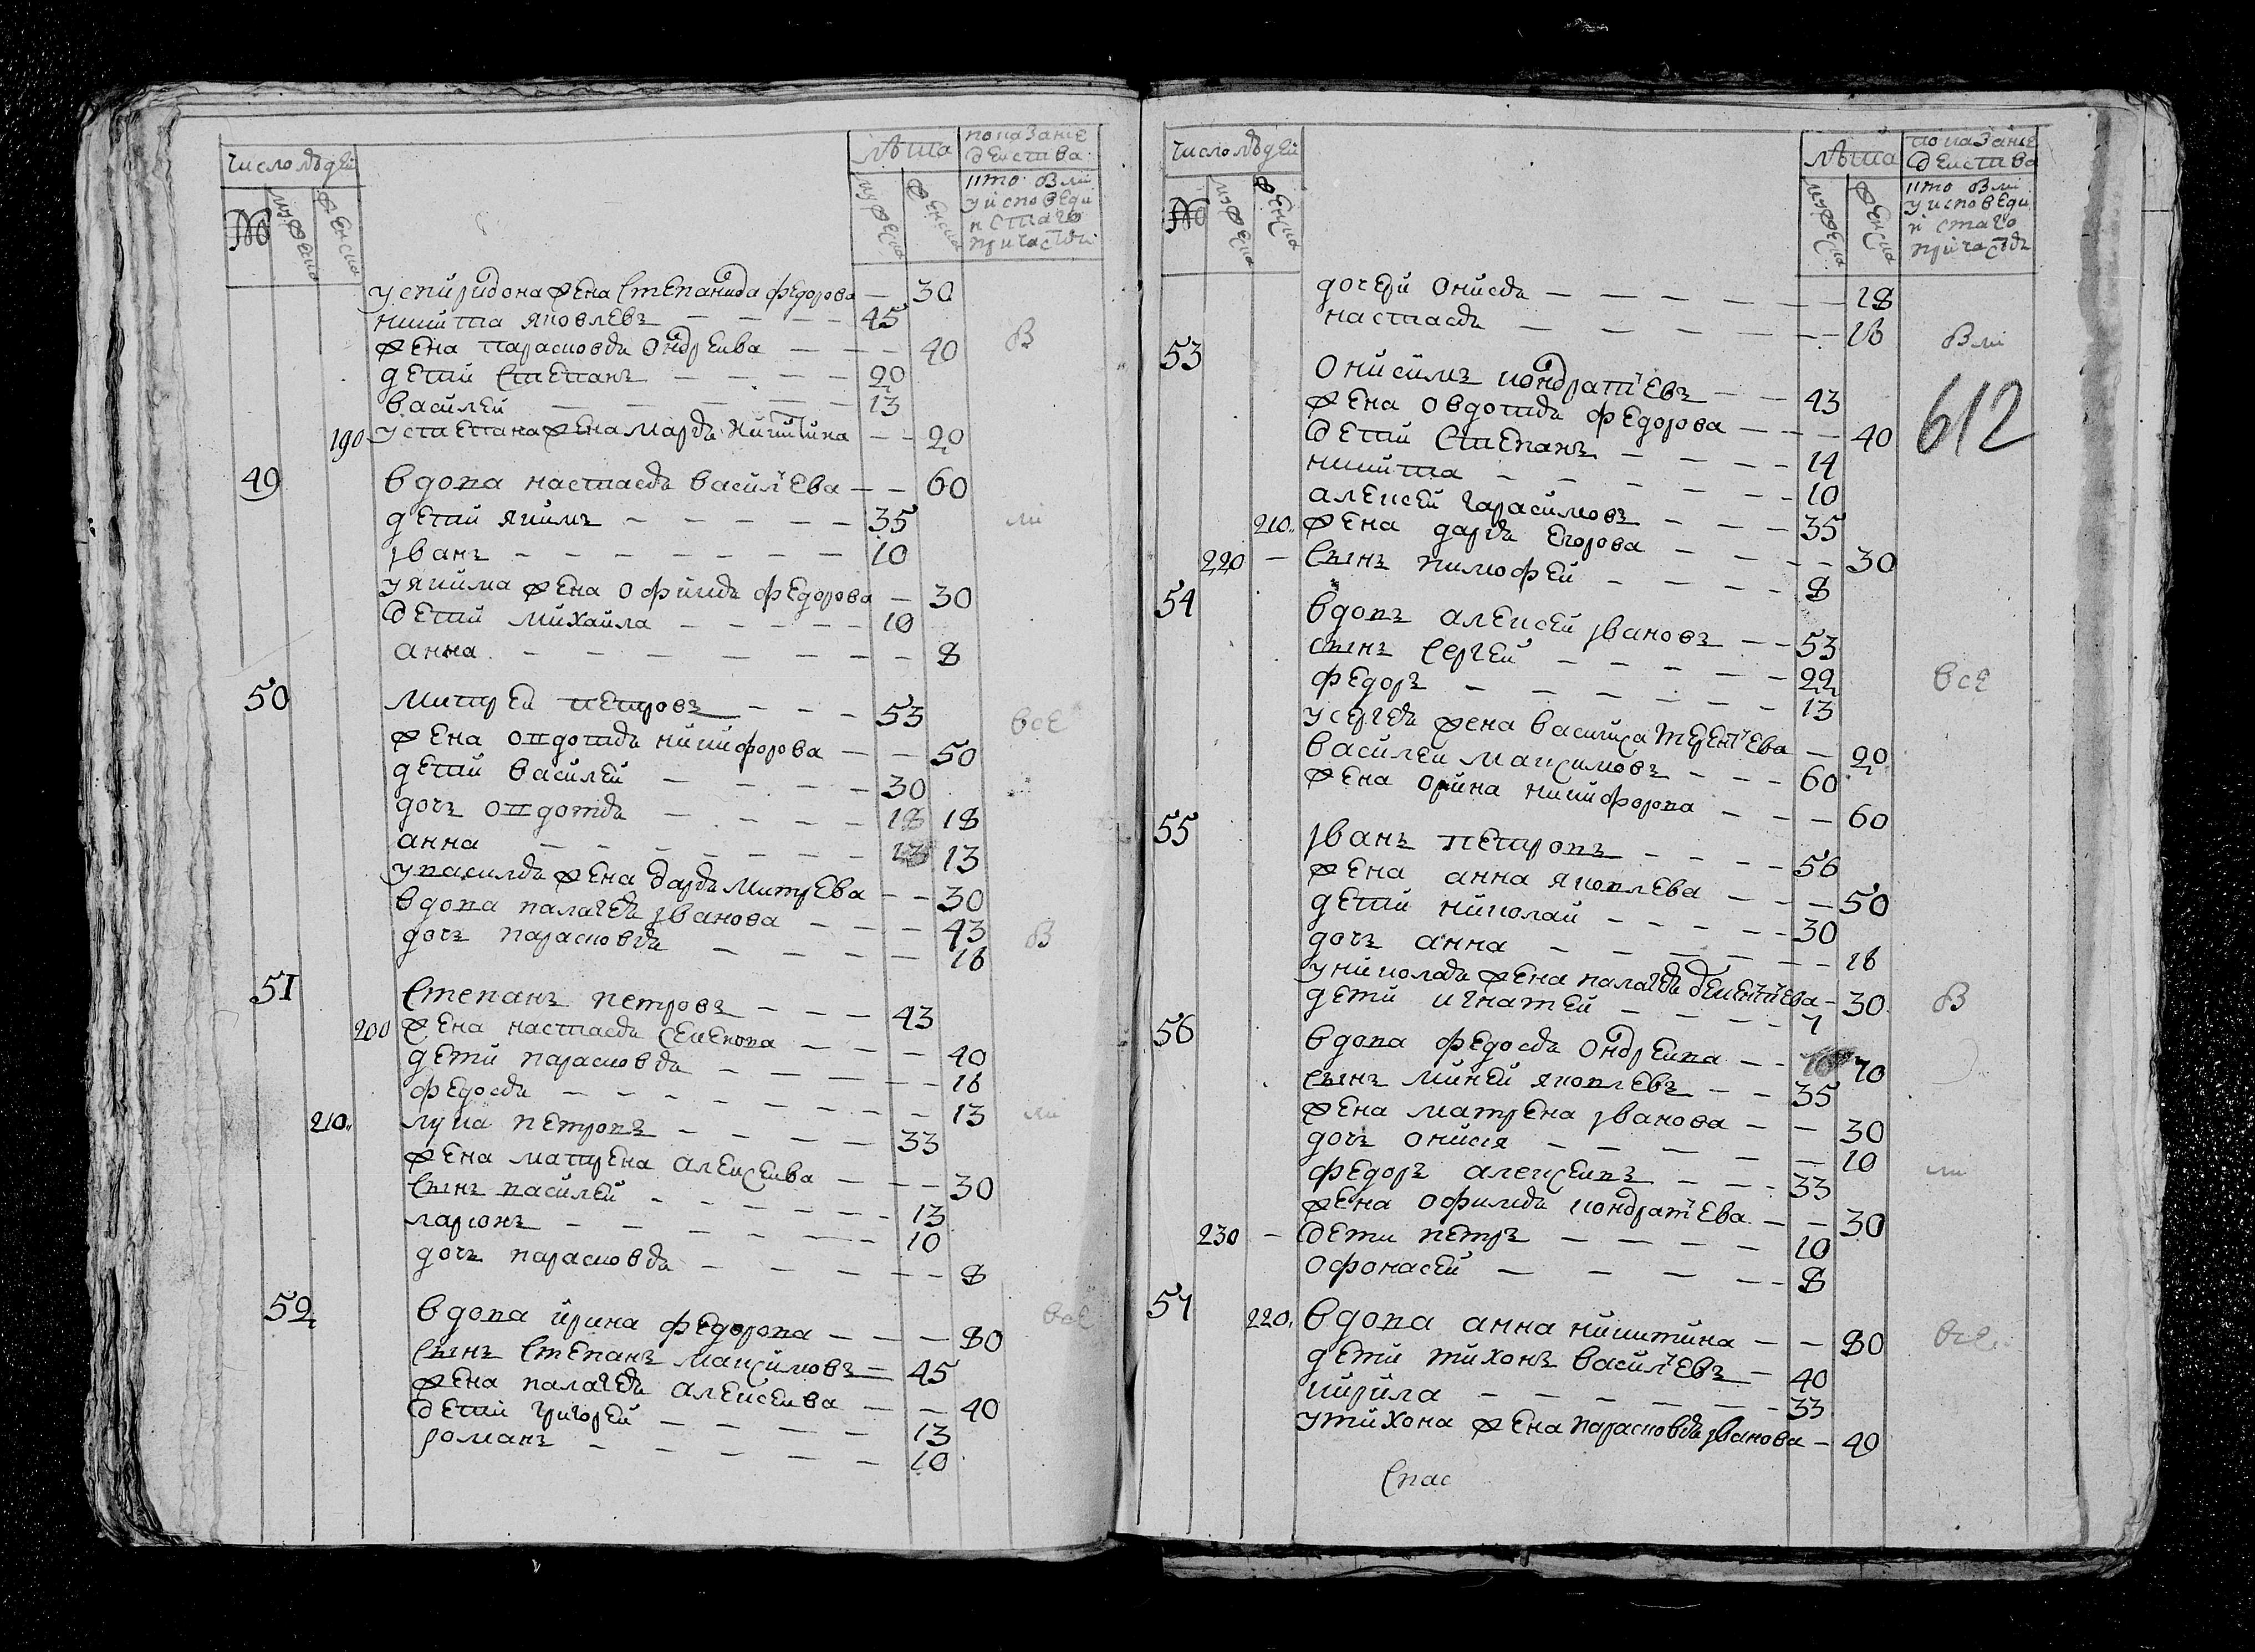 число людей
лѣта
показание
действа
№
мужеска
женска
мужеска
женска
кто былъ
у исповеди
и стаго
причастия
у спиридона жена степанида федорова — 30
никита яковлевъ — 45
жена парасковья ондреива — 40
в
детй степанъ — 20
василей — 13
190 у степана жена марья никитина — 20
49 вдова настасья василева — 60
детй якимъ — 35
ıванъ — 10
у якима жена офимья федорова — 30
детй михайла — 10
анна — 8
50 митрей петровъ — 53
все
жена овдотья никифорова — 50
детй василей — 30
дочъ овдотья — 18 18
анна — 13 13
у василья жена дарья митрева — 30
вдова палагея ıванова — 43
в
дочъ парасковья — 16
51 степанъ петровъ — 43
200 жена настасья семенова — 40
детй парасковья — 16
федосья — 13
210 лука петровъ — 33
жена матрена алексеива — 30
сынъ василей — 13
ларıонъ — 10
дочъ парасковья — 8
52 вдова ирина федорова — 80
все
сынъ степанъ максимовъ — 45
жена палагея алексеива — 40
детй григорей — 13
романъ — 10
число людей
лѣта
показание
действа
№
мужеска
женска
мужеска
женска
кто былъ
у исповеди
и стаго
причастия
дочери онисья — 18
настасья — 16
612
53 онисимъ кондратıевъ — 43
жена овдотья федорова — 40
детй степанъ — 14
никита — 10
алексей гарасимовъ — 35
210 жена дарья егорова — 30
220 — сынъ тимофей — 8
54 вдовъ алексей ıвановъ — 53
сынъ сергей — 22
все
федоръ — 13
у сергея жена василиса терентıева — 20
василей максимовъ — 60
жена орина никифорова — 60
55 ıванъ петровъ — 56
жена анна яковлева — 50
детй николай — 30
дочъ анна — 16
у николая жена палагея дементıева — 30
в
детй игнатей — 7
56 вдова федосья ондреива — 70
сынъ миней яковлевъ — 35
жена матрена ıванова — 30
дочъ онисıя — 10
федоръ алексеивъ — 33
жена офимья кондратıева — 30
230 — дети петръ — 10
офонасей — 8
57 220 вдова анна никитина — 80
все
дети тихонъ василıевъ — 40
кирила — 33
у тихона жена парасковья ıванова — 40
спас